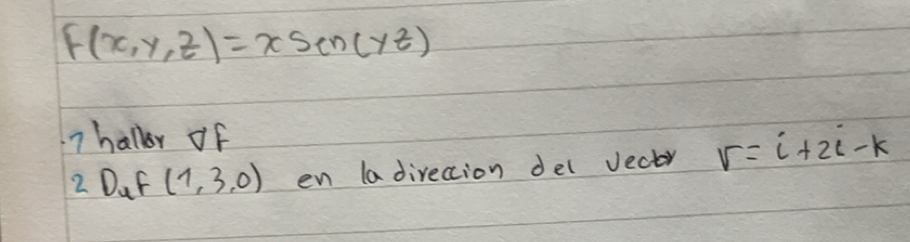 f(x,y,z)=x Sen(yz)
1 hallar ∇f
2 Duf (1,3,0) en la direccion del vector v=i+2i-k